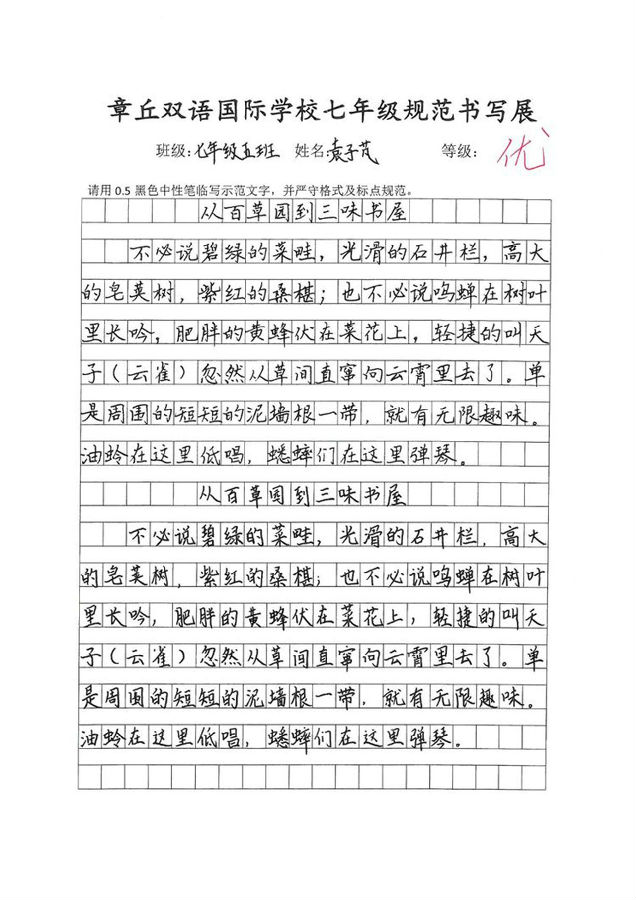 章丘双语国际学校七年级规范书写展
班级:七年级五班 姓名:袁子芃 等级:优
请用 0.5 黑色中性笔临写示范文字，并严守格式及标点规范。
从百草园到三味书屋
不必说碧绿的菜畦，光滑的石井栏，高大
的皂荚树，紫红的桑椹；也不必说鸣蝉在树叶
里长吟，肥胖的黄蜂伏在菜花上，轻捷的叫天
子（云雀）忽然从草间直窜向云霄里去了。单
是周围的短短的泥墙根一带，就有无限趣味。
油蛉在这里低唱，蟋蟀们在这里弹琴。
从百草园到三味书屋
不必说碧绿的菜畦，光滑的石井栏，高大
的皂荚树，紫红的桑椹；也不必说鸣蝉在树叶
里长吟，肥胖的黄蜂伏在菜花上，轻捷的叫天
子（云雀）忽然从草间直窜向云霄里去了。单
是周围的短短的泥墙根一带，就有无限趣味。
油蛉在这里低唱，蟋蟀们在这里弹琴。